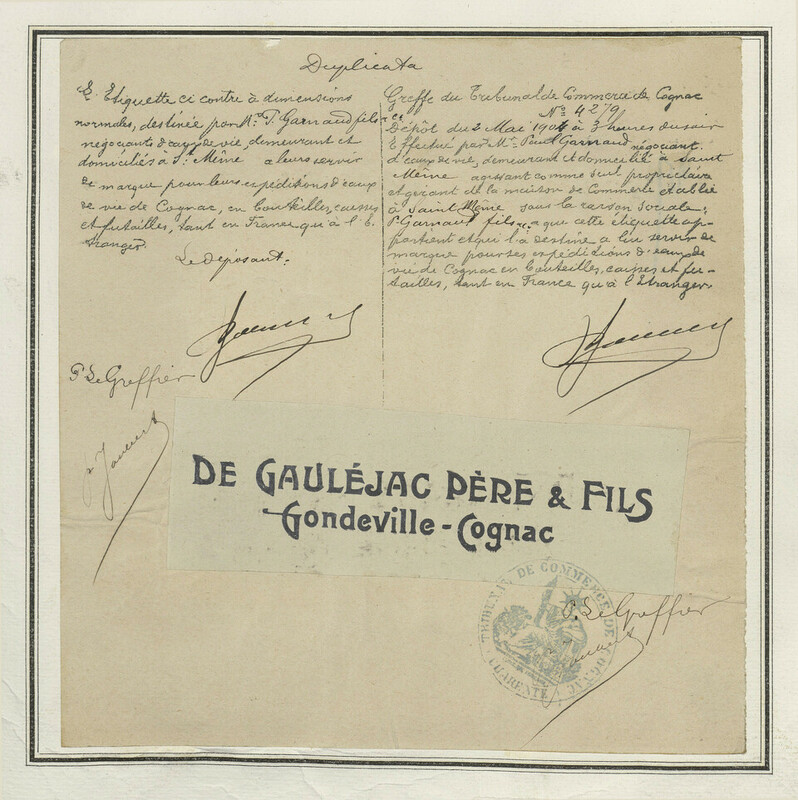 Duplicata
Etiquette ci contre à dimensions
normales, destinée par Mr. P. Garnaud fils
négociants d'eaux de vie, demeurant et
domiciliés à St. Même a leurs servir
de marque pour leurs expéditions d'eaux
de vie de Cognac, en bouteilles, caisses
et futailles, tant en France qu'à l'E-
tranger.
Le déposant:
Greffe du Tribunal de Commerce de Cognac
No 4279
Dépôt du 2 Mai 1904 à 3 heures du soir
Effectué par Mr. Paul Garnaud négociant
d'eaux de vie, demeurant et domicilié à Saint
Même agissant comme seul propriétaire
et gérant de la maison de Commerce établie
à Saint Même sous la raison sociale:
P. Garnaud fils & Cie a que cette étiquette ap-
partient et qui l'a destine a lui servir de
marque pour ses expéditions d'eaux de
vie de Cognac en bouteilles, caisses et fu-
tailles, tant en France qu'à l'Etranger.
P. Le Greffier
DE GAULÉJAC PÈRE & FILS
Gondeville-Cognac
TRIBUNAL DE COMMERCE DE COGNAC
CHARENTE
P. Le Greffier